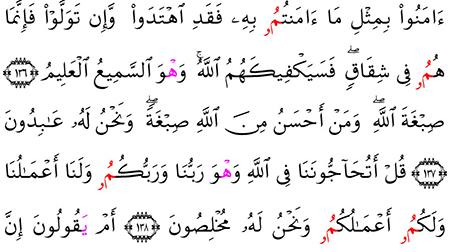 ءَامَنُوا۟ بِمِثْلِ مَا ءَامَنتُمُۥ بِهِۦ فَقَدِ ٱهْتَدَوا۟ وَّإِن تَوَلَّوْا۟ فَإِنَّمَا
هُمُۥ فِى شِقَاقٍۖ فَسَيَكْفِيكَهُمُ ٱللَّهُۚ وَهْوَ ٱلسَّمِيعُ ٱلْعَلِيمُ ١٣٦
صِبْغَةَ ٱللَّهِۖ وَمَنْ أَحْسَنُ مِنَ ٱللَّهِ صِبْغَةًۖ وَنَحْنُ لَهُۥ عَـٰبِدُونَ
١٣٧ قُلْ أَتُحَآجُّونَنَا فِى ٱللَّهِ وَهْوَ رَبُّنَا وَرَبُّكُمُۥ وَلَنَا أَعْمَـٰلُنَا
وَلَكُمُۥ أَعْمَـٰلُكُمُۥ وَنَحْنُ لَهُۥ مُخْلِصُونَ ١٣٨ أَمْ يَقُولُونَ إِنَّ